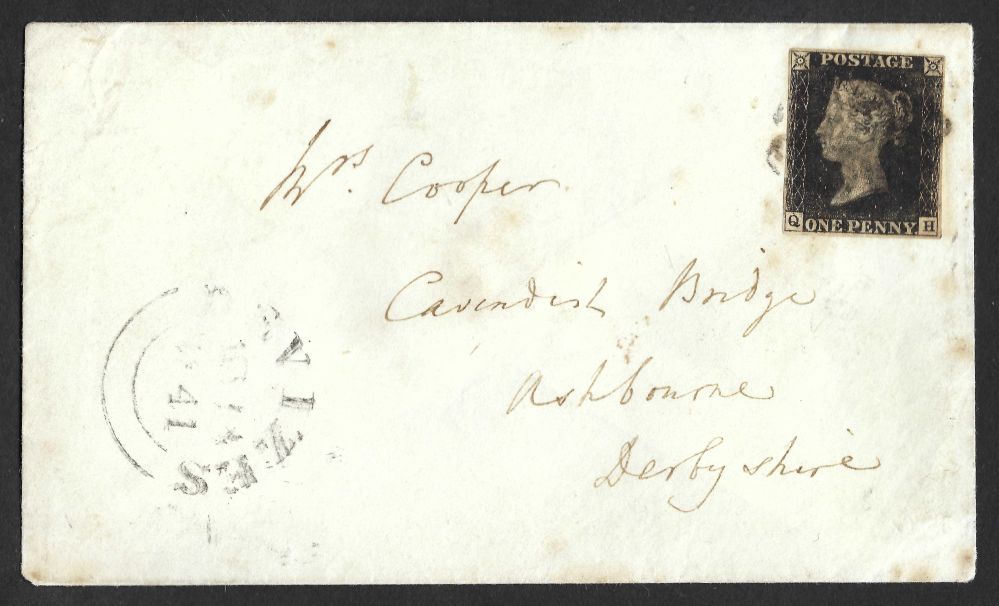 POSTAGE
Q ONE PENNY H
Mrs. Cooper
Cavendish Bridge
Ashbourne
Derbyshire
VIZES
41